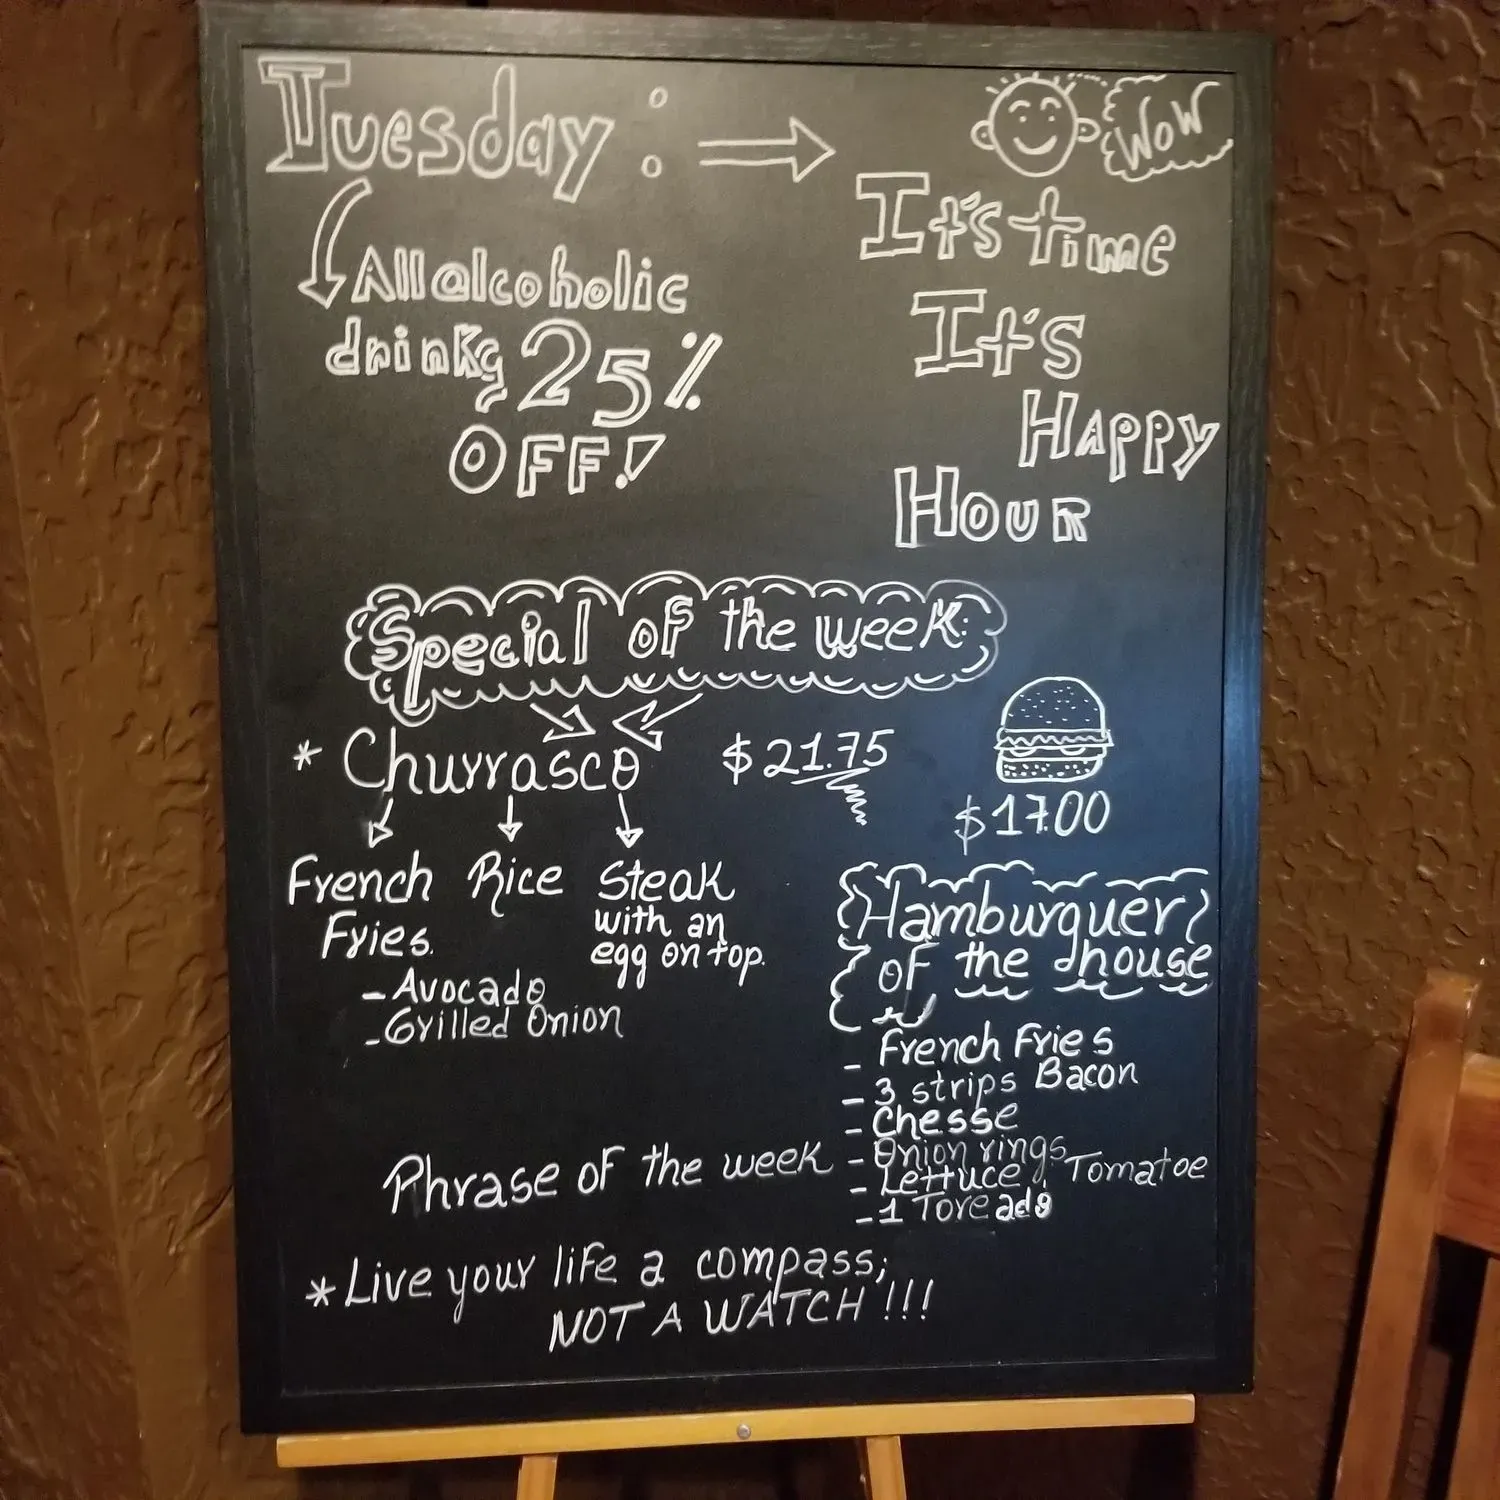 Tuesday:
All alcoholic
drinks 25%
OFF!
WOW
It's time
It's
HAPPY
HOUR
Special of the week:
* Churrasco $21.75
French Rice Steak
Fries. with an
egg on top.
- Avocado
- Grilled Onion
$17.00
Hamburguer
of the house
- French Fries
- 3 strips Bacon
- Chesse
- Onion rings
- Lettuce, Tomatoe
- 1 Toreado
Phrase of the week
* Live your life a compass;
NOT A WATCH !!!